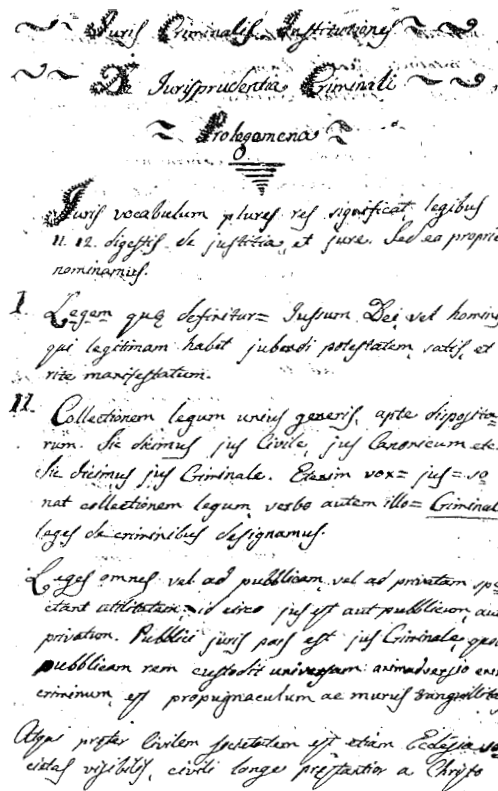 Juris Criminalis Institutiones
De Jurisprudentia Criminali
Prolegomena
Juris vocabulum plures res significat legibus
11. 12. digestis de justitia, et jure. Sed ea proprie
nominamus.
I. Legem quę definitur= Jussum Dei, vel hominis
qui legitimam habet jubendi potestatem, satis, et
rite manifestatum.
II. Collectionem legum unius generis, apte disposita=
rum. Sic dicimus jus Civile, jus Canonicum etc.
Sic dicimus jus Criminale. Etenim vox= jus= so
nat collectionem legum, verbo autem illo= Criminal
leges de criminibus designamus.
Leges omnes vel ad pubblicam, vel ad privatam spe
ctant utilitatem, id circo jus est aut pubblicum, aut
privatum. Pubblici juris pars est jus Criminale, quod
pubblicam rem custodit universam: animadversio enim
criminum, est propugnaculum ac murus tranquillita
Atqui pręter Civilem societatem est etiam Ecclesia so
cietas visibilis, civili longe pręstantior a Christo